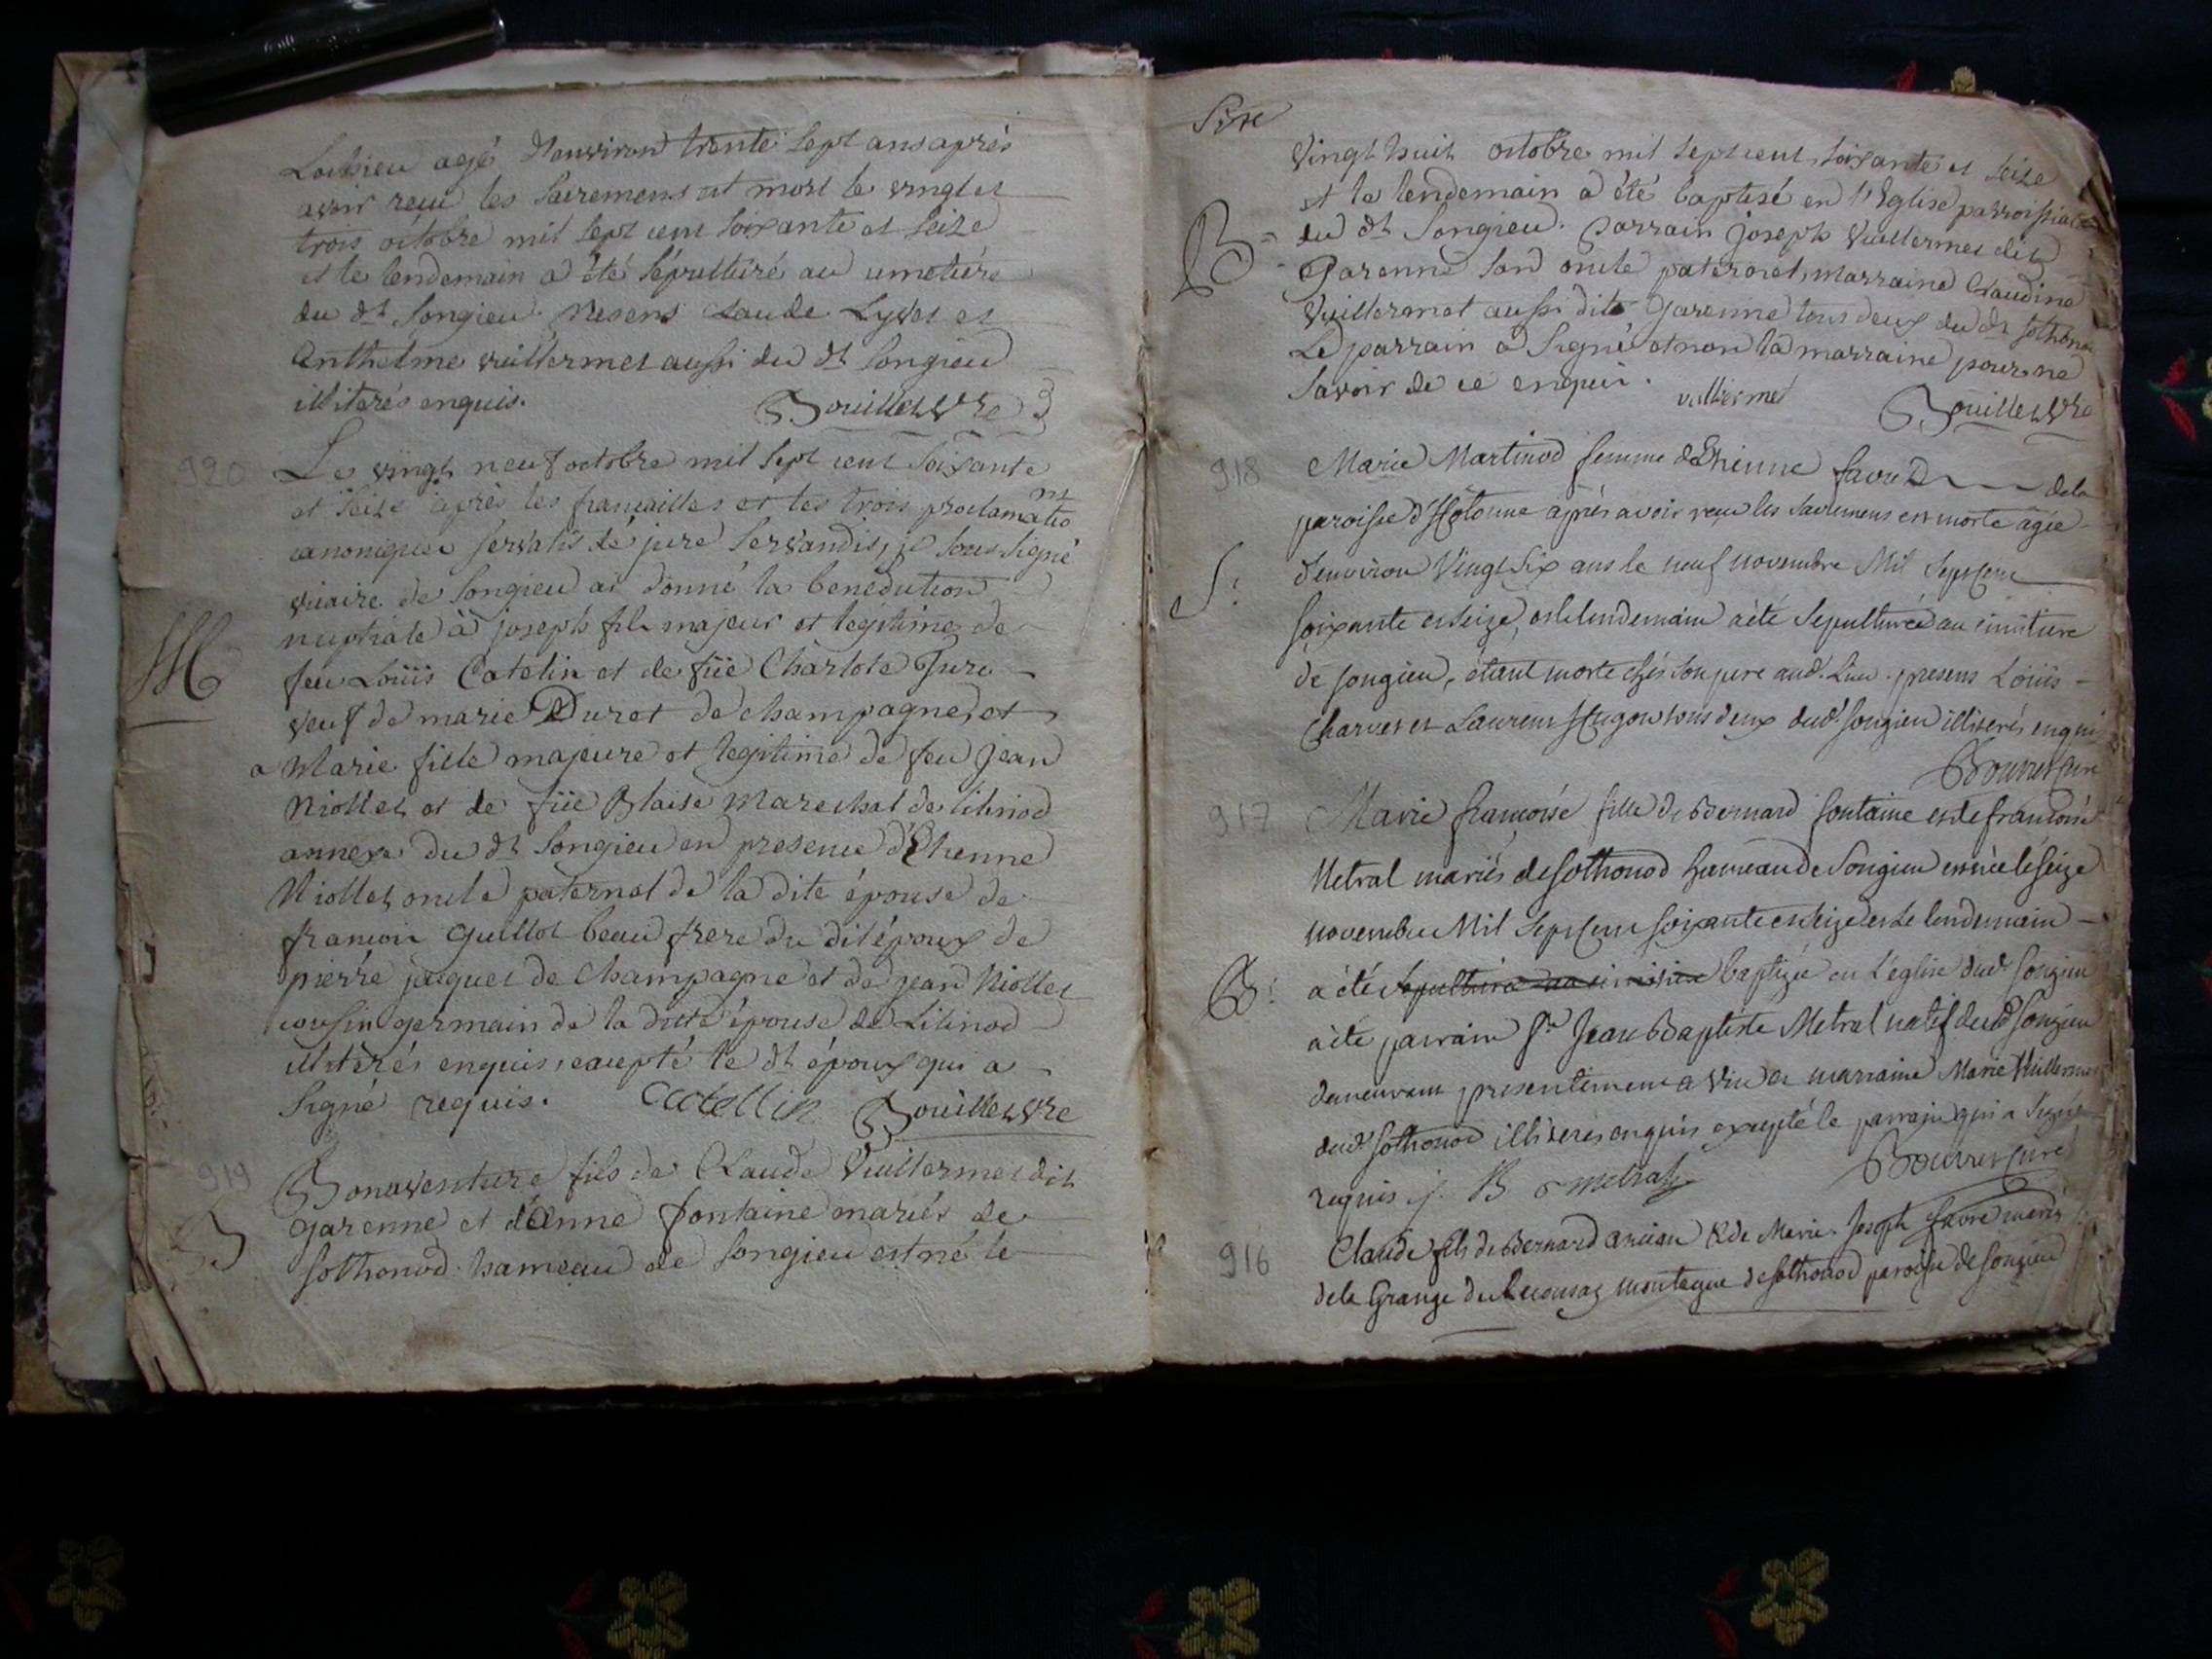 Lochieu agé d'environ trente sept ans après
avoir reçu les sacremens est mort le vingt et
trois octobre mil sept cent soixante et seize
et le lendemain a été sépulturé au cimetière
du dt Songieu. Presens Claude Lyvet et
Anthelme vuillermet aussi du dt Songieu
illiterés enquis. Bouillet Vre
920 Le vingt neuf octobre mil sept cent soixante
et seize après les fiancailles et les trois proclamatio ns
canoniques servatis de jure servandis, je sous signé
vicaire de Songieu ai donné la benediction
nuptiale à joseph fils majeur et legitime de
M feu Loüis Catelin et de füe Charlote Jure
veuf de marie Duret de champagne, et
a Marie fille majeure et legitime de feu Jean
Niollet et de füe Blaise Marechal de lilinod
annexe du dt Songieu en presence d'Etienne
Niollet oncle paternel de la dite épouse de
francois Guillot beau frere du dit époux de
pierre jaques de Champagne et de jean Niollet
cousin germain de la dite épouse de Lilinod
illiterés enquis, excepté le dt époux qui a
signé requis. Catellin Bouillet Vre
919 Bonaventure fils de Claude Vuillermet dit
B garenne et d'Anne fontaine mariés de
Sothonod hameau de Songieu est né le
vingt huit octobre mil sept cent soixante et seize
et le lendemain a été baptisé en l'Eglise parroissiale
B du dt Songieu. Parrain joseph Vuillermet dit
Garenne son oncle paternel, marraine Claudine
Vuillermet aussi dite garenne tous deux du dt Sothonod
Le parrain a signé et non la marraine pour ne
savoir de ce enquis. vullierme Bouillet Vre
918 Marie Martinod femme d'Etienne favre de la
paroisse d'Hotonne après avoir reçu les sacremens est morte agée
S: d'environ vingt six ans le neuf novembre Mil Sept cent
soixante et seize, et le lendemain a été Sepulturée au cimitiere
de songieu, étant morte chés son pere aud. Lieu. presens Loüis
Charvet et Laurens Hugon tous deux dud. songieu illiterés enquis
Bouvret curé
917 Marie francoise fille de Bernard fontaine et de francoise
Metral mariés de Sothonod hameau de Songieu est née le seize
novembre Mil Sept cent soixante et seize et le lendemain
B: a été sepulturée au cimitiere baptizée en L'eglise dud. songieu
a été parrain Sr. Jean Baptiste Metral natif dud. Songieu
demeurant presentement a et marraine Marie Vuillermet
dud. Sothonod illiterés enquis excepté le parrain qui a signé
requis j. B metral Bouvret curé
916 Claude fils de Bernard ancian & de Marie. Joseph favre mariés
dela Grange du montagne de sothonod paroisse de songieu